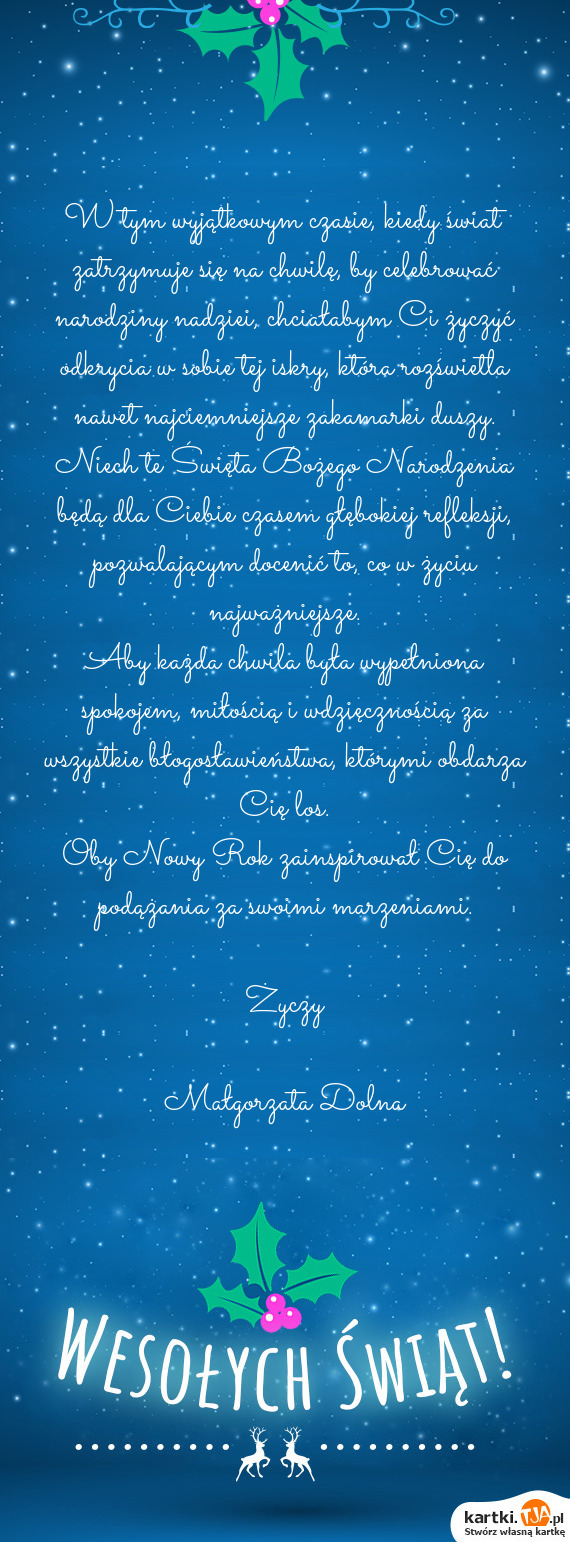 W tym wyjątkowym czasie, kiedy świat
zatrzymuje się na chwilę, by celebrować
narodziny nadziei, chciałabym Ci życzyć
odkrycia w sobie tej iskry, która rozświetla
nawet najciemniejsze zakamarki duszy.
Niech te Święta Bożego Narodzenia
będą dla Ciebie czasem głębokiej refleksji,
pozwalającym docenić to, co w życiu
najważniejsze.
Aby każda chwila była wypełniona
spokojem, miłością i wdzięcznością za
wszystkie błogosławieństwa, którymi obdarza
Cię los.
Oby Nowy Rok zainspirował Cię do
podążania za swoimi marzeniami.
Życzy
Małgorzata Dolna
Wesołych Świąt!
kartki.TJA.pl
Stwórz własną kartkę